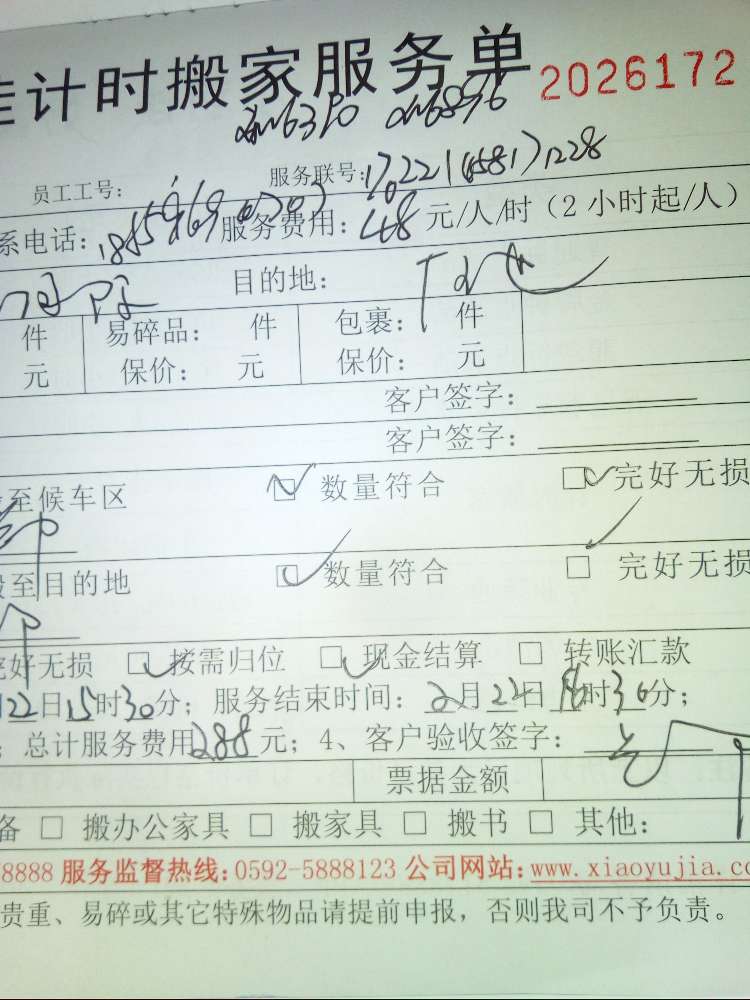 计时搬家服务单 2026172
员工工号： 服务联号：
系电话： 服务费用：48元/人/时（2小时起/人）
目的地：
件 易碎品： 件 包裹： 件
元 保价： 元 保价： 元
客户签字：
客户签字：
至候车区 数量符合 完好无损
至目的地 数量符合 完好无损
完好无损 □ 按需归位 □ 现金结算 □ 转账汇款
月22日15时30分；服务结束时间：2月22日 时30分；
；总计服务费用288元；4、客户验收签字：
票据金额
备 □ 搬办公家具 □ 搬家具 □ 搬书 □ 其他：
8888 服务监督热线：0592-5888123 公司网站：www.xiaoyujia.co
贵重、易碎或其它特殊物品请提前申报，否则我司不予负责。